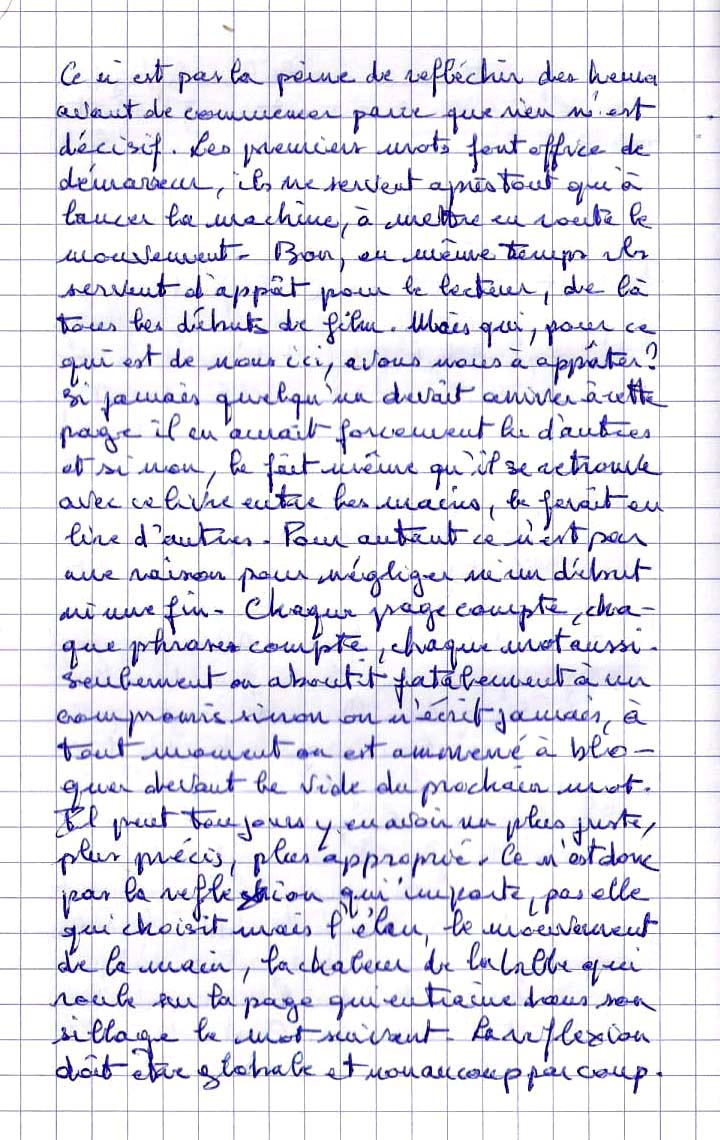 Ce n'est pas la peine de refléchir des heures
avant de commencer parce que rien n'est
décisif. Les premiers mots font office de
démarreur, ils ne servent après tout qu'à
lancer la machine, à mettre en route le
mouvement. Bon, en même temps ils
servent d'appât pour le lecteur, de là
tous les débuts de film. Mais qui, pour ce
qui est de nous ici, avons nous à appâter?
Si jamais quelqu'un devait arriver à cette
page il en aurait forcement lu d'autres
et si non, le fait même qu'il se retrouve
avec ce livre entre les mains, le ferait en
lire d'autres. Pour autant ce n'est pas
une raison pour négliger ni un début
ni une fin. Chaque page compte, cha-
que phrases compte, chaque mot aussi.
Seulement on aboutit fatalement à un
compromis sinon on n'écrit jamais, à
tout moment on est ammené à blo-
quer devant le vide du prochain mot.
Il peut toujours y en avoir un plus juste,
plus précis, plus approprié. Ce n'est donc
pas la reflexion qui importe, pas elle
qui choisit mais l'élan, le mouvement
de la main, la chaleur de la bille qui
roule sur la page qui entraine dans son
sillage le mot suivant. La reflexion
doit être globale et non au coup par coup.